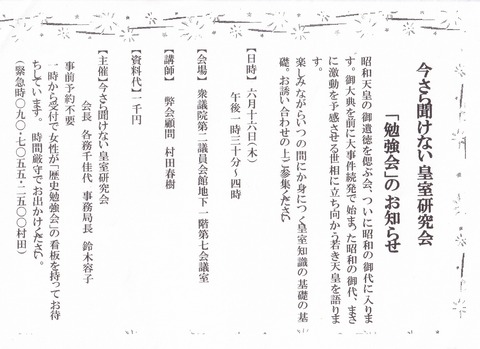 今さら聞けない皇室研究会
「勉強会」のお知らせ
昭和天皇の御遺徳を偲ぶ会、ついに昭和の御代に入りま
す。御大典を前に大事件続発で始まった昭和の御代、まさ
に激動を予感させる世相に立ち向かう若き天皇を語りま
す。
楽しみながらいつの間にか身につく皇室知識の基礎の基
礎。お誘い合わせの上ご参集ください
【日時】 六月十六日(木)
午後一時三十分～四時
【会場】 衆議院第二議員会館地下一階第七会議室
【講師】 弊会顧問 村田春樹
【資料代】一千円
【主催】今さら聞けない皇室研究会
会長 各務千佳代 事務局長 鈴木容子
事前予約不要
一時から受付で女性が「歴史勉強会」の看板を持ってお待
ちしています。 時間厳守でお出かけください。
(緊急時〇九〇・七〇五五・二五〇〇村田)